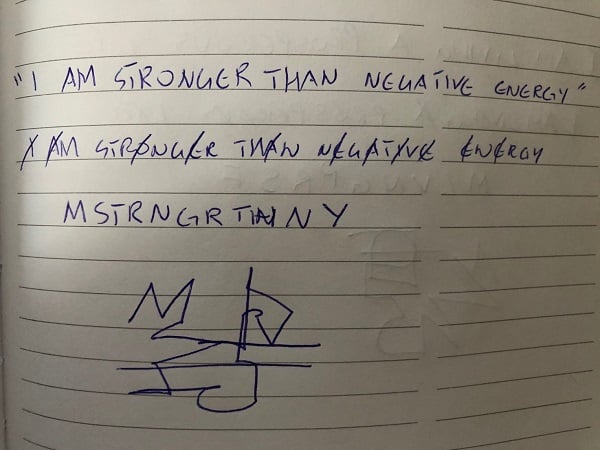 "I AM STRONGER THAN NEGATIVE ENERGY"
I AM STRONGER THAN NEGATIVE ENERGY
MSTRNGRTHNY